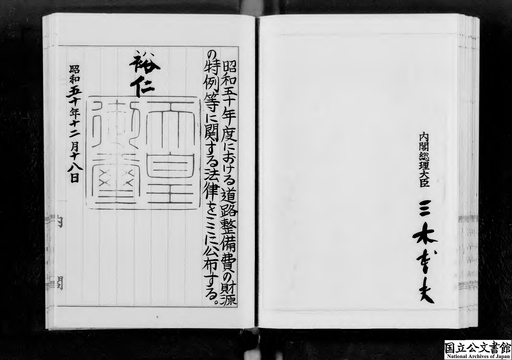 内閣総理大臣
三木武夫
昭和五十年度における道路整備費の財源
の特例等に関する法律をここに公布する。
裕仁
天皇
御璽
昭和五十年十二月十八日
内閣
国立公文書館
National Archives of Japan